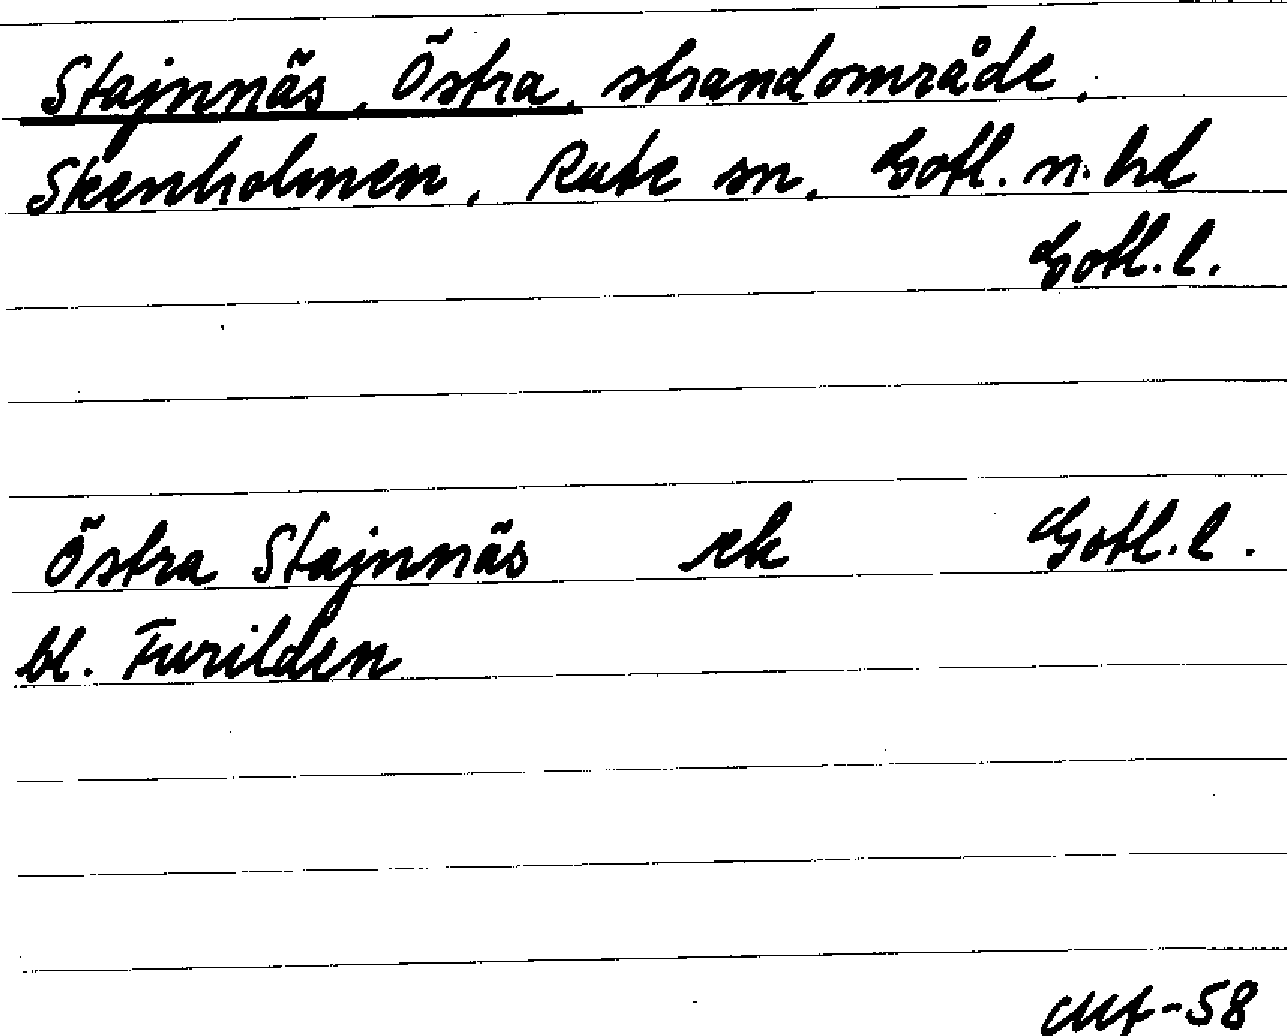 Stajnnäs, Östra, strandområde,
Skenholmen, Rute sn, Gotl. n. hd
Gotl. l.
Östra Stajnnäs ek Gotl. l.
bl. Furilden
-58